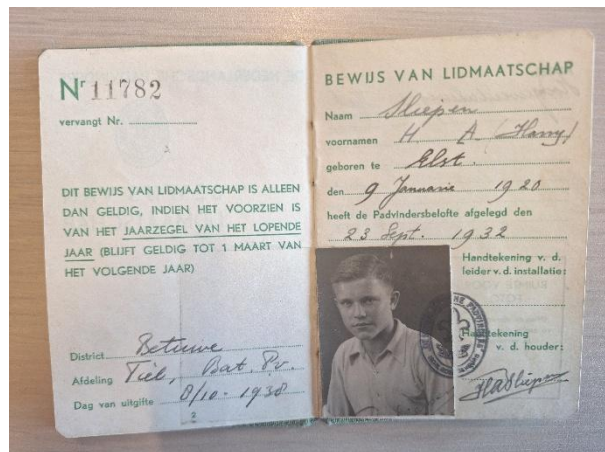 Nr 11782
vervangt Nr.
DIT BEWIJS VAN LIDMAATSCHAP IS ALLEEN
DAN GELDIG, INDIEN HET VOORZIEN IS
VAN HET JAARZEGEL VAN HET LOPENDE
JAAR (BLIJFT GELDIG TOT 1 MAART VAN
HET VOLGENDE JAAR)
District Betuwe
Afdeling Tiel, Bat. Pv.
Dag van uitgifte 8/10 - 1938
2
BEWIJS VAN LIDMAATSCHAP
Naam Sliepen
voornamen H A (Harry)
geboren te Elst.
den 9 Januarie 1920
heeft de Padvindersbelofte afgelegd den
23 Sept. 1932
Handtekening v. d.
leider v. d. installatie:
Handtekening
v. d. houder:
HASliepen